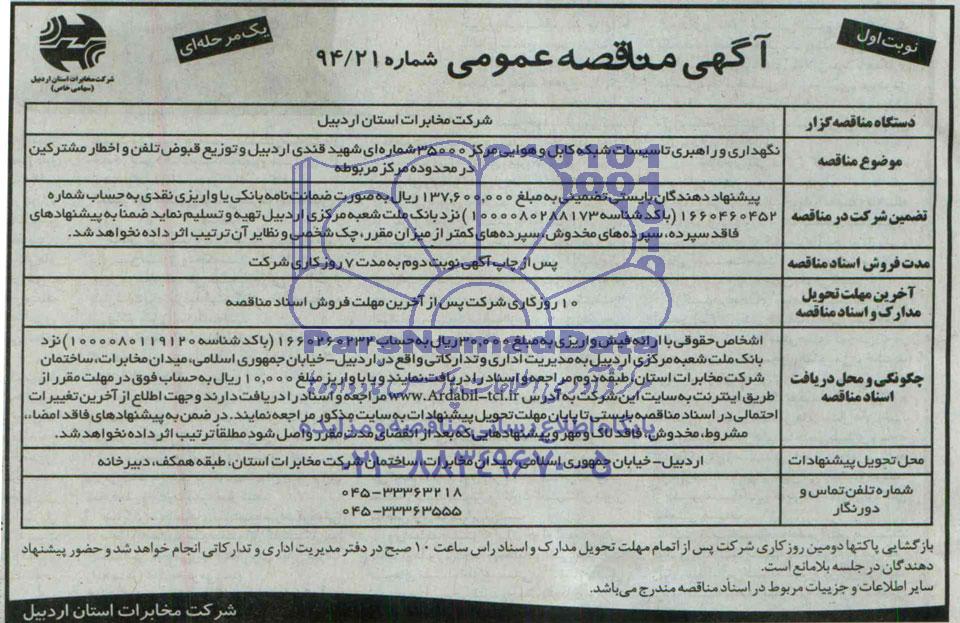 نوبت اول
آگهی مناقصه عمومی شماره ۹۴/۲۱
یک مرحله‌ای
شرکت مخابرات استان اردبیل
(سهامی خاص)
دستگاه مناقصه گزار
شرکت مخابرات استان اردبیل
موضوع مناقصه
نگهداری و راهبری تاسیسات شبکه کابل و هوایی مرکز ۳۵۰۰۰شماره‌ای شهید قندی اردبیل و توزیع قبوض تلفن و اخطار مشترکین
در محدوده مرکز مربوطه
تضمین شرکت در مناقصه
پیشنهاد دهندگان بایستی تضمینی به مبلغ ۱۳۷,۶۰۰,۰۰۰ ریال به صورت ضمانت نامه بانکی یا واریزی نقدی به حساب شماره
۱۶۶۰۴۶۰۴۵۲ (با کد شناسه ۱۰۰۰۰۰۸۰۲۸۸۱۷۳) نزد بانک ملت شعبه مرکزی اردبیل تهیه و تسلیم نماید ضمناً به پیشنهادهای
فاقد سپرده، سپرده‌های مخدوش، سپرده‌های کمتر از میزان مقرر، چک شخصی و نظایر آن ترتیب اثر داده نخواهد شد.
مدت فروش اسناد مناقصه
پس از چاپ آگهی نوبت دوم به مدت ۷ روز کاری شرکت
آخرین مهلت تحویل
مدارک و اسناد مناقصه
۱۰ روز کاری شرکت پس از آخرین مهلت فروش اسناد مناقصه
چگونگی و محل دریافت
اسناد مناقصه
اشخاص حقوقی با ارائه فیش واریزی به مبلغ ۳۰,۰۰۰ ریال به حساب ۱۶۶۰۲۶۰۲۳۲ (با کد شناسه ۱۰۰۰۰۰۸۰۱۱۹۱۲۰) نزد
بانک ملت شعبه مرکزی اردبیل به مدیریت اداری و تدارکاتی واقع در اردبیل- خیابان جمهوری اسلامی، میدان مخابرات، ساختمان
شرکت مخابرات استان، طبقه دوم مراجعه و اسناد را دریافت نمایند و یا با واریز مبلغ ۱۰,۰۰۰ ریال به حساب فوق در مهلت مقرر از
طریق اینترنت به سایت این شرکت به آدرس www.Ardabil-tci.ir مراجعه و اسناد را دریافت دارند و جهت اطلاع از آخرین تغییرات
احتمالی در اسناد مناقصه بایستی تا پایان مهلت تحویل پیشنهادات به سایت مذکور مراجعه نمایند. در ضمن به پیشنهادهای فاقد امضاء،
مشروط، مخدوش، فاقد لاک و مهر و پیشنهادهایی که بعد از انقضای مدت مقرر واصل شود مطلقاً ترتیب اثر داده نخواهد شد.
محل تحویل پیشنهادات
اردبیل- خیابان جمهوری اسلامی، میدان مخابرات، ساختمان شرکت مخابرات استان، طبقه همکف، دبیرخانه
شماره تلفن تماس و
دورنگار
۰۴۵-۳۳۳۶۳۲۱۸
۰۴۵-۳۳۳۶۳۵۵۵
بازگشایی پاکتها دومین روز کاری شرکت پس از اتمام مهلت تحویل مدارک و اسناد راس ساعت ۱۰ صبح در دفتر مدیریت اداری و تدارکاتی انجام خواهد شد و حضور پیشنهاد
دهندگان در جلسه بلامانع است.
سایر اطلاعات و جزییات مربوط در اسناد مناقصه مندرج می‌باشد.
شرکت مخابرات استان اردبیل
ParsNamadData
پایگاه اطلاع رسانی مناقصه و مزایده
۰۲۱-۸۸۳۴۹۶۷۰-۵